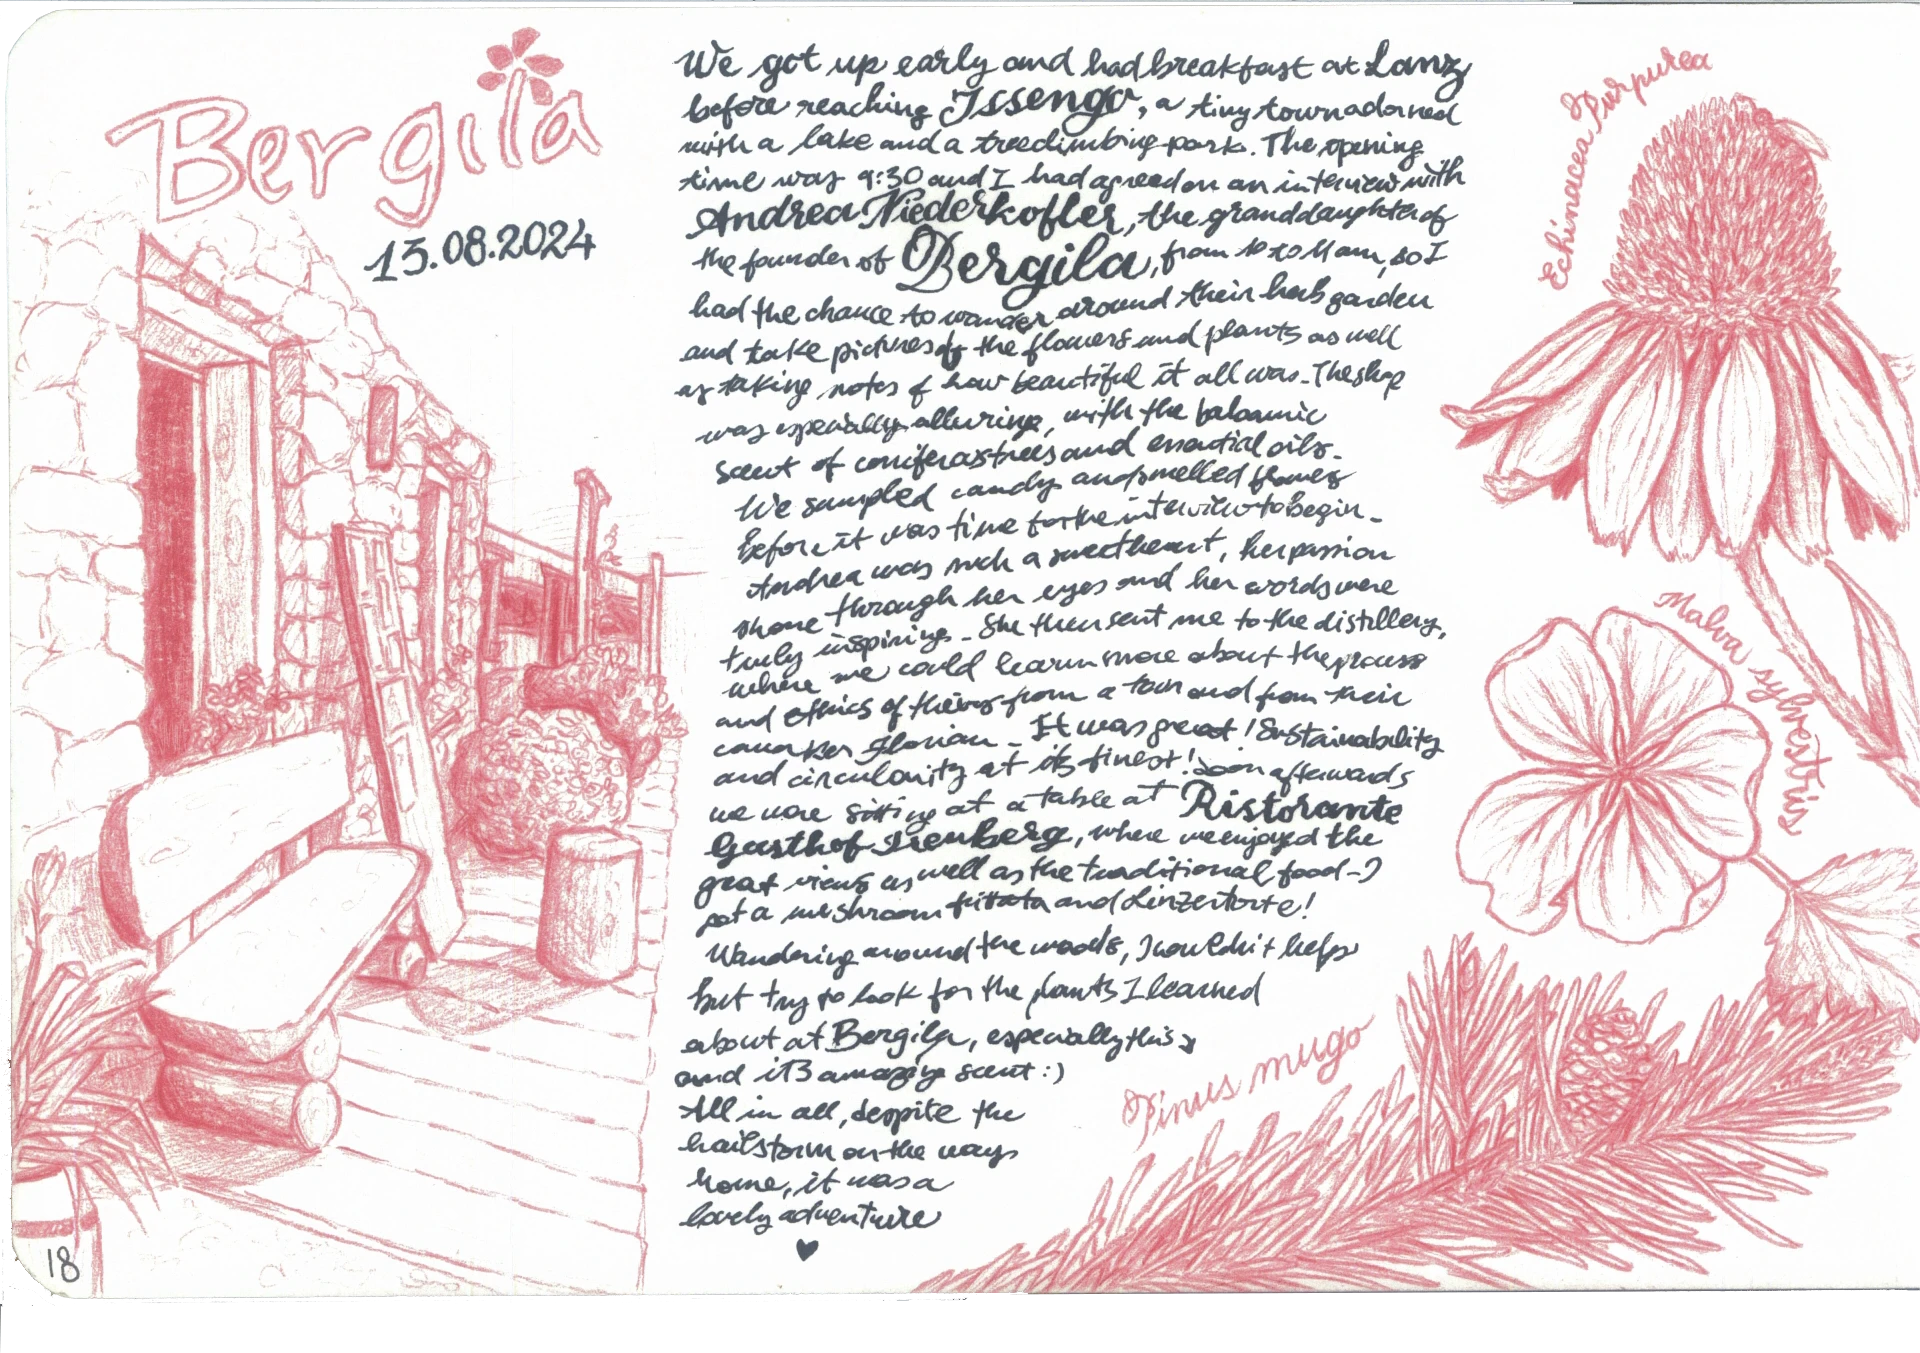 Bergila
13.08.2024
We got up early and had breakfast at Lanz
before reaching Issengo, a tiny town adorned
with a lake and a treeclimbing park. The opening
time was 9:30 and I had agreed on an interview with
Andrea Niederkofler, the granddaughter of
the founder of Bergila, from 10 to 11 am, so I
had the chance to wander around their herb garden
and take pictures of the flowers and plants as well
as taking notes of how beautiful it all was. The shop
was especially alluring, with the balsamic
scent of coniferas trees and essential oils.
We sampled candy and smelled flowers
before it was time for the interview to begin.
Andrea was such a sweetheart, her passion
shone through her eyes and her words were
truly inspiring. She then sent me to the distillery,
where we could learn more about the process
and ethics of theirs from a tour and from their
Florian. It was great! Sustainability
and circularity at its finest! Soon afterwards
we were sitting at a table at Ristorante
Gasthof Irenberg, where we enjoyed the
great views as well as the traditional food - I
got a mushroom frittata and Linzertorte!
Wandering around the woods, I wouldn't help
but try to look for the plants I learned
about at Bergila, especially this
and it's amazing scent :)
All in all, despite the
hailstorm on the way
home, it was a
lovely adventure
♥
Echinacea Purpurea
Malva sylvestris
Pinus mugo
18